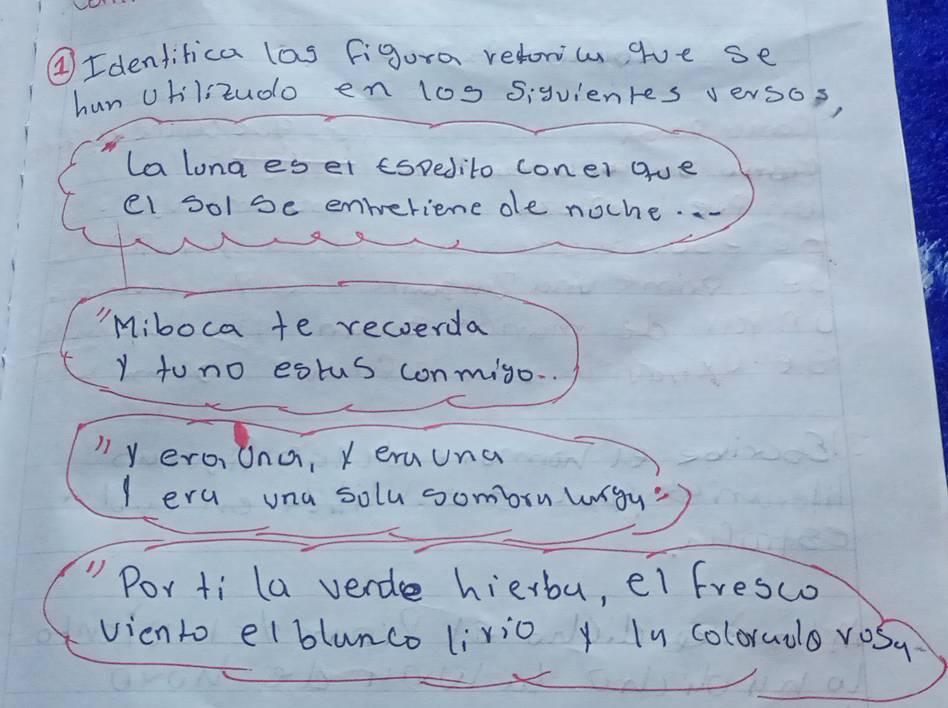 ① Identifica las figura retoricas que se
han utilizado en los siguientes versos,
"La luna es el espejito con el que
el sol se entretiene de noche...
"Mi boca te recuerda
y tu no estas conmigo..
"Y era una, y era una
Y era una sola sombra larga"
"Por ti la verde hierba, el fresco
viento el blanco lirio y la colorada rosa